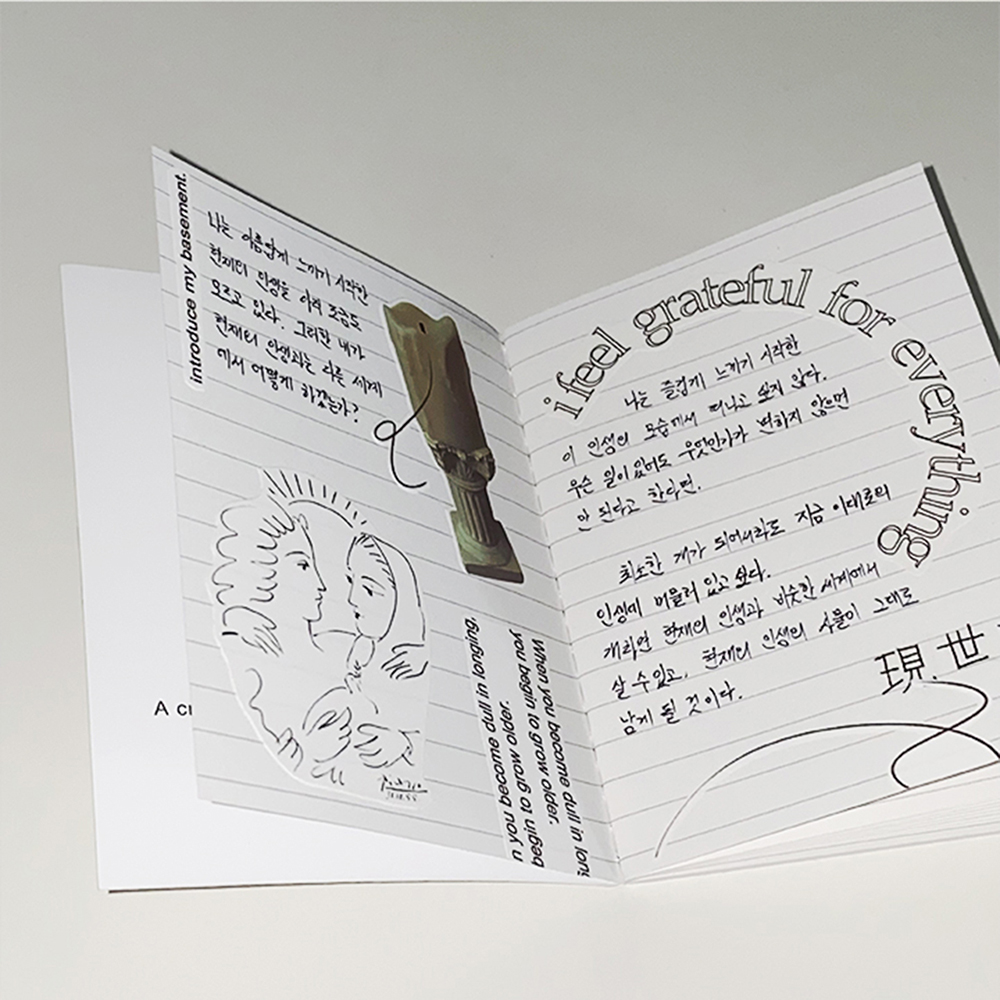 introduce my basement.
나는 아름답게 느끼기 시작한
현재의 인생을 아직 조금도
모르고 있다. 그러한 내가
현재의 인생과는 다른 세계
에서 어떻게 하겠는가?
A cu
n you become dull in longing,
begin to grow older.
When you become dull in long
you begin to grow older.
i feel grateful for everything
나는 즐겁게 느끼기 시작한
이 인생의 모습에서 떠나고 싶지 않다.
무슨 일이 있어도 무엇인가가 변하지 않으면
안 된다고 한다면.
최소한 개가 되어서라도 지금 이대로의
인생에 머물러 있고 싶다.
개라면 현재의 인생과 비슷한 세계에서
살 수 있고, 현재의 인생의 사물이 그대로
남게 될 것이다.
現世